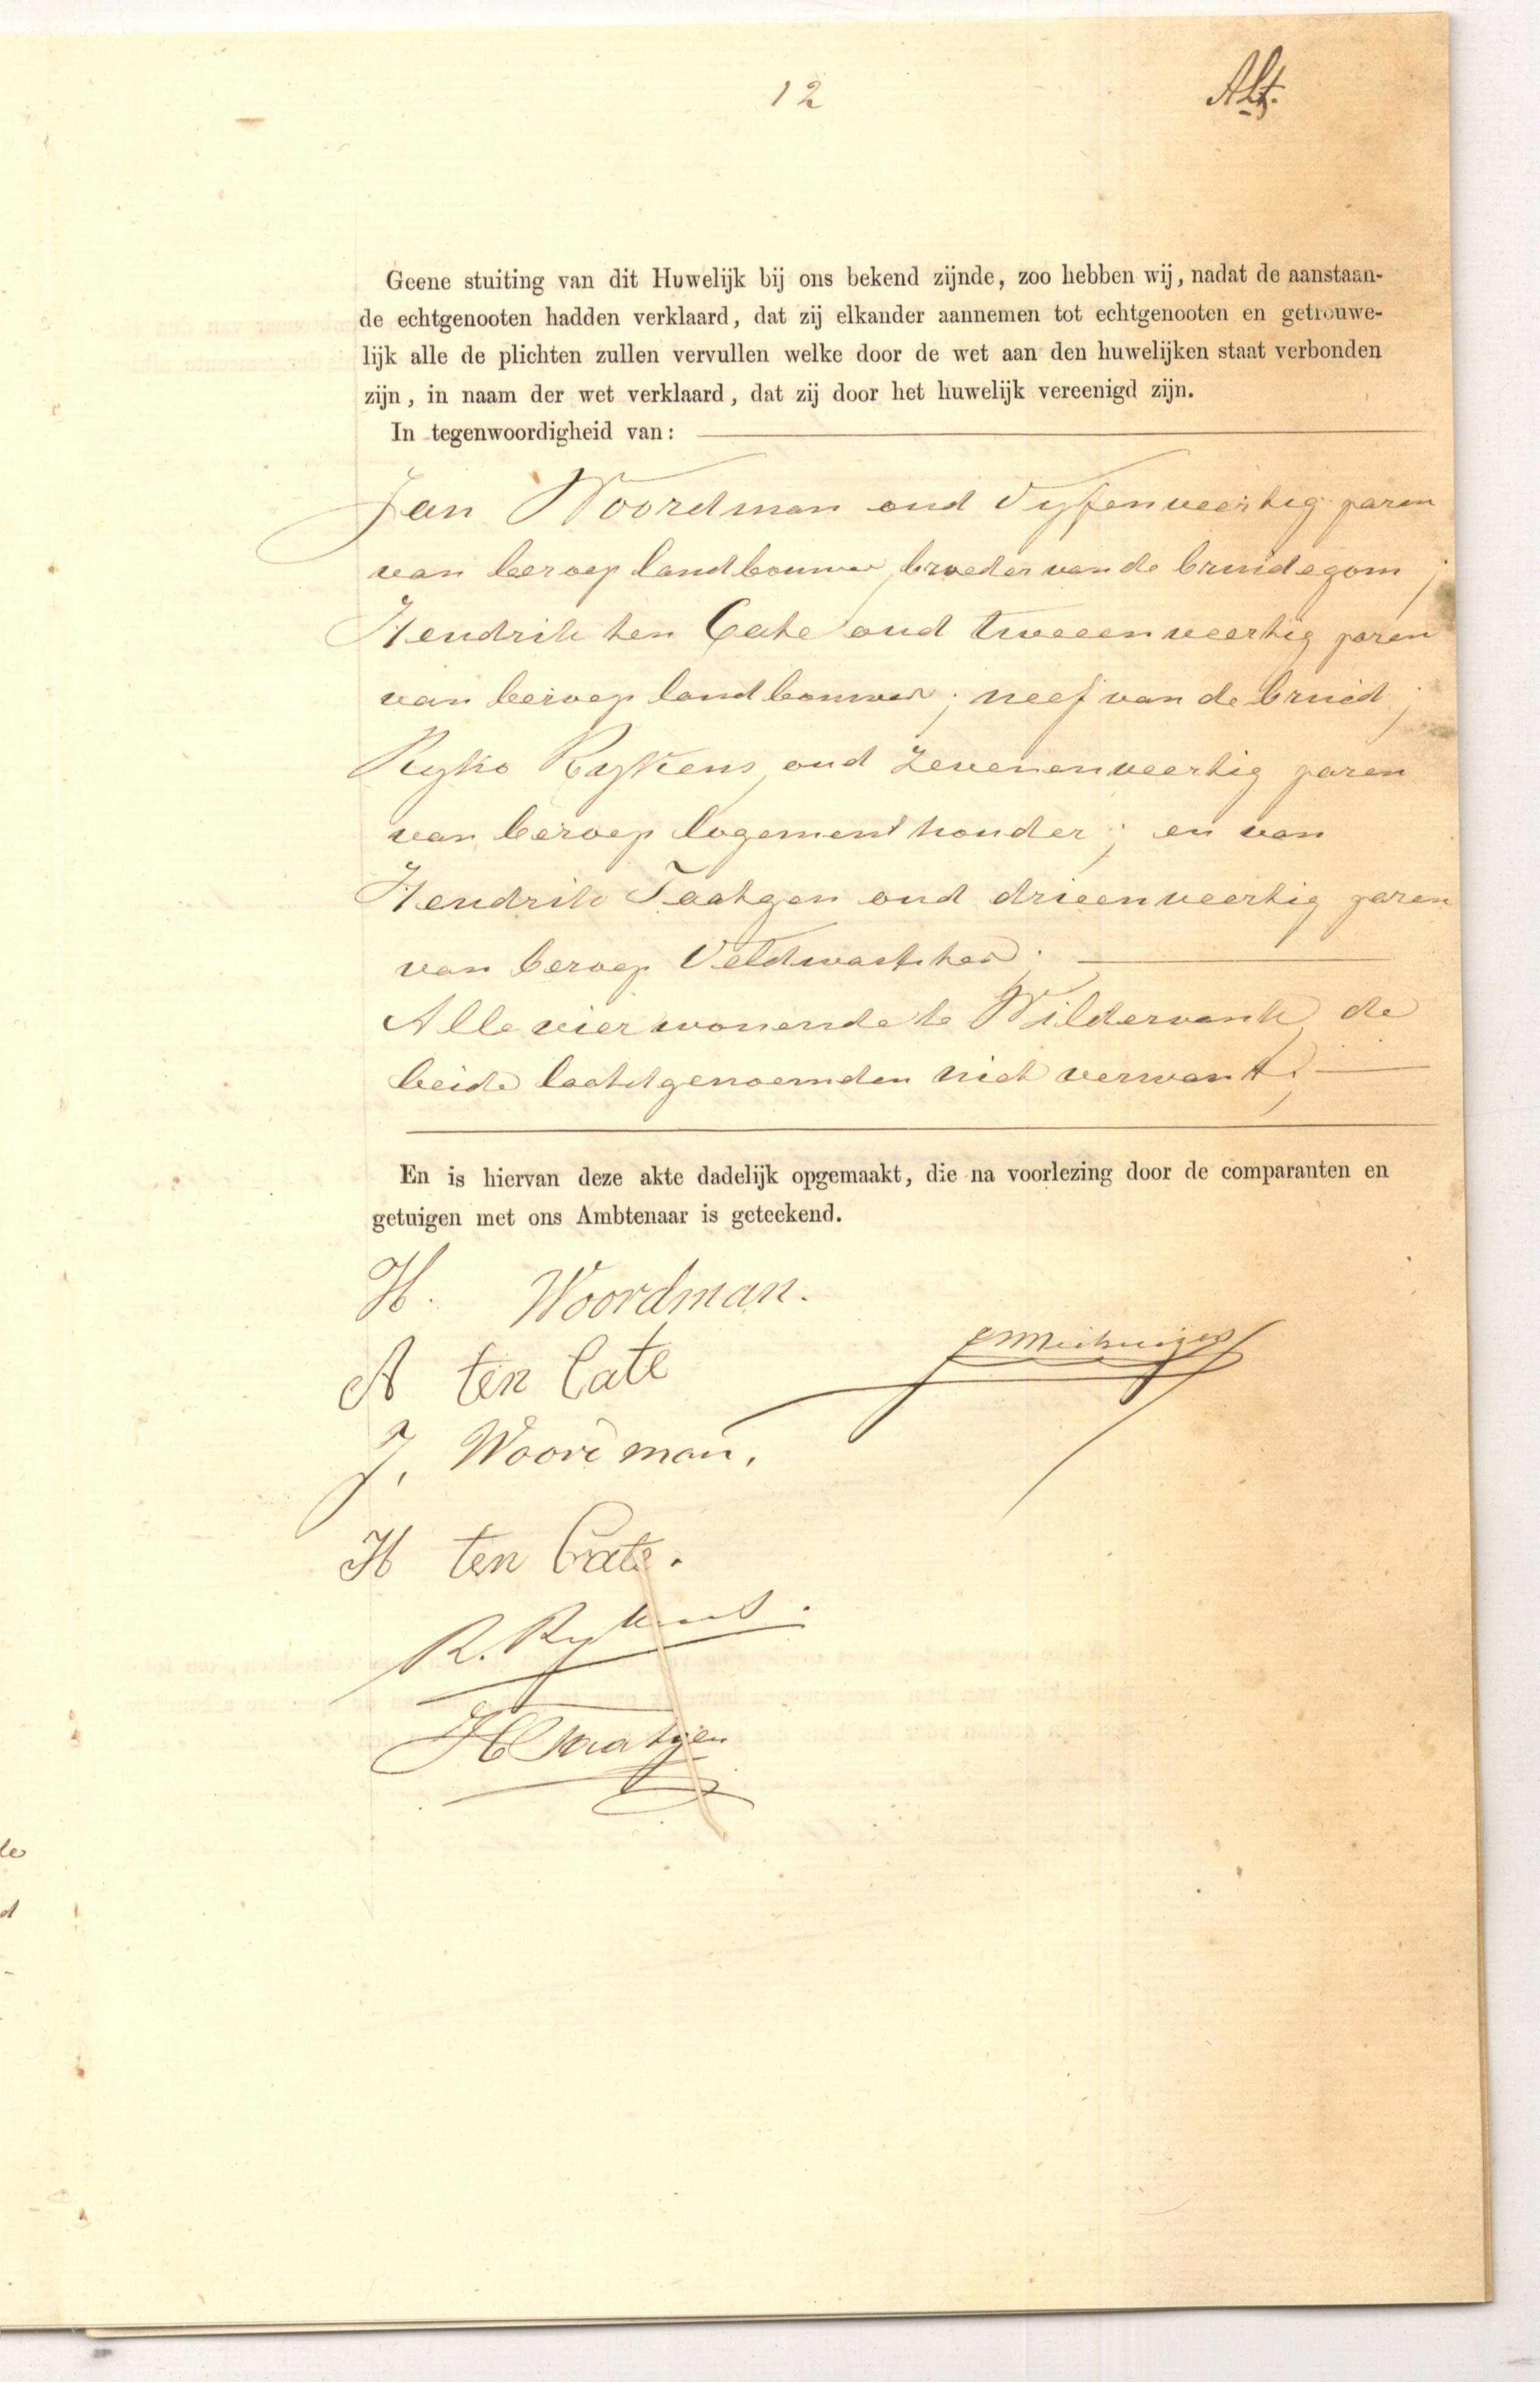 12
Alt.
Geene stuiting van dit Huwelijk bij ons bekend zijnde, zoo hebben wij, nadat de aanstaan-
de echtgenooten hadden verklaard, dat zij elkander aannemen tot echtgenooten en getrouwe-
lijk alle de plichten zullen vervullen welke door de wet aan den huwelijken staat verbonden
zijn, in naam der wet verklaard, dat zij door het huwelijk vereenigd zijn.
In tegenwoordigheid van:
Jan Woordman oud Vyfenveertig jaren
van beroep landbouwer, broeder van de bruidegom;
Hendrik ten Cate oud tweeenveertig jaren
van beroep landbouwer; neef van de bruid;
Ryko Rykens, oud zevenenveertig jaren
van beroep logementhouder; en van
Hendrik Taatgen oud drieenveertig jaren
van beroep Veldwachter;
Alle vier wonende te Wildervank, de
beide laatstgenoemden niet verwant.
En is hiervan deze akte dadelijk opgemaakt, die na voorlezing door de comparanten en
getuigen met ons Ambtenaar is geteekend.
H. Woordman.
A ten Cate
J. Woordman.
H ten Cate.
R. Rykens.
H Taatgen